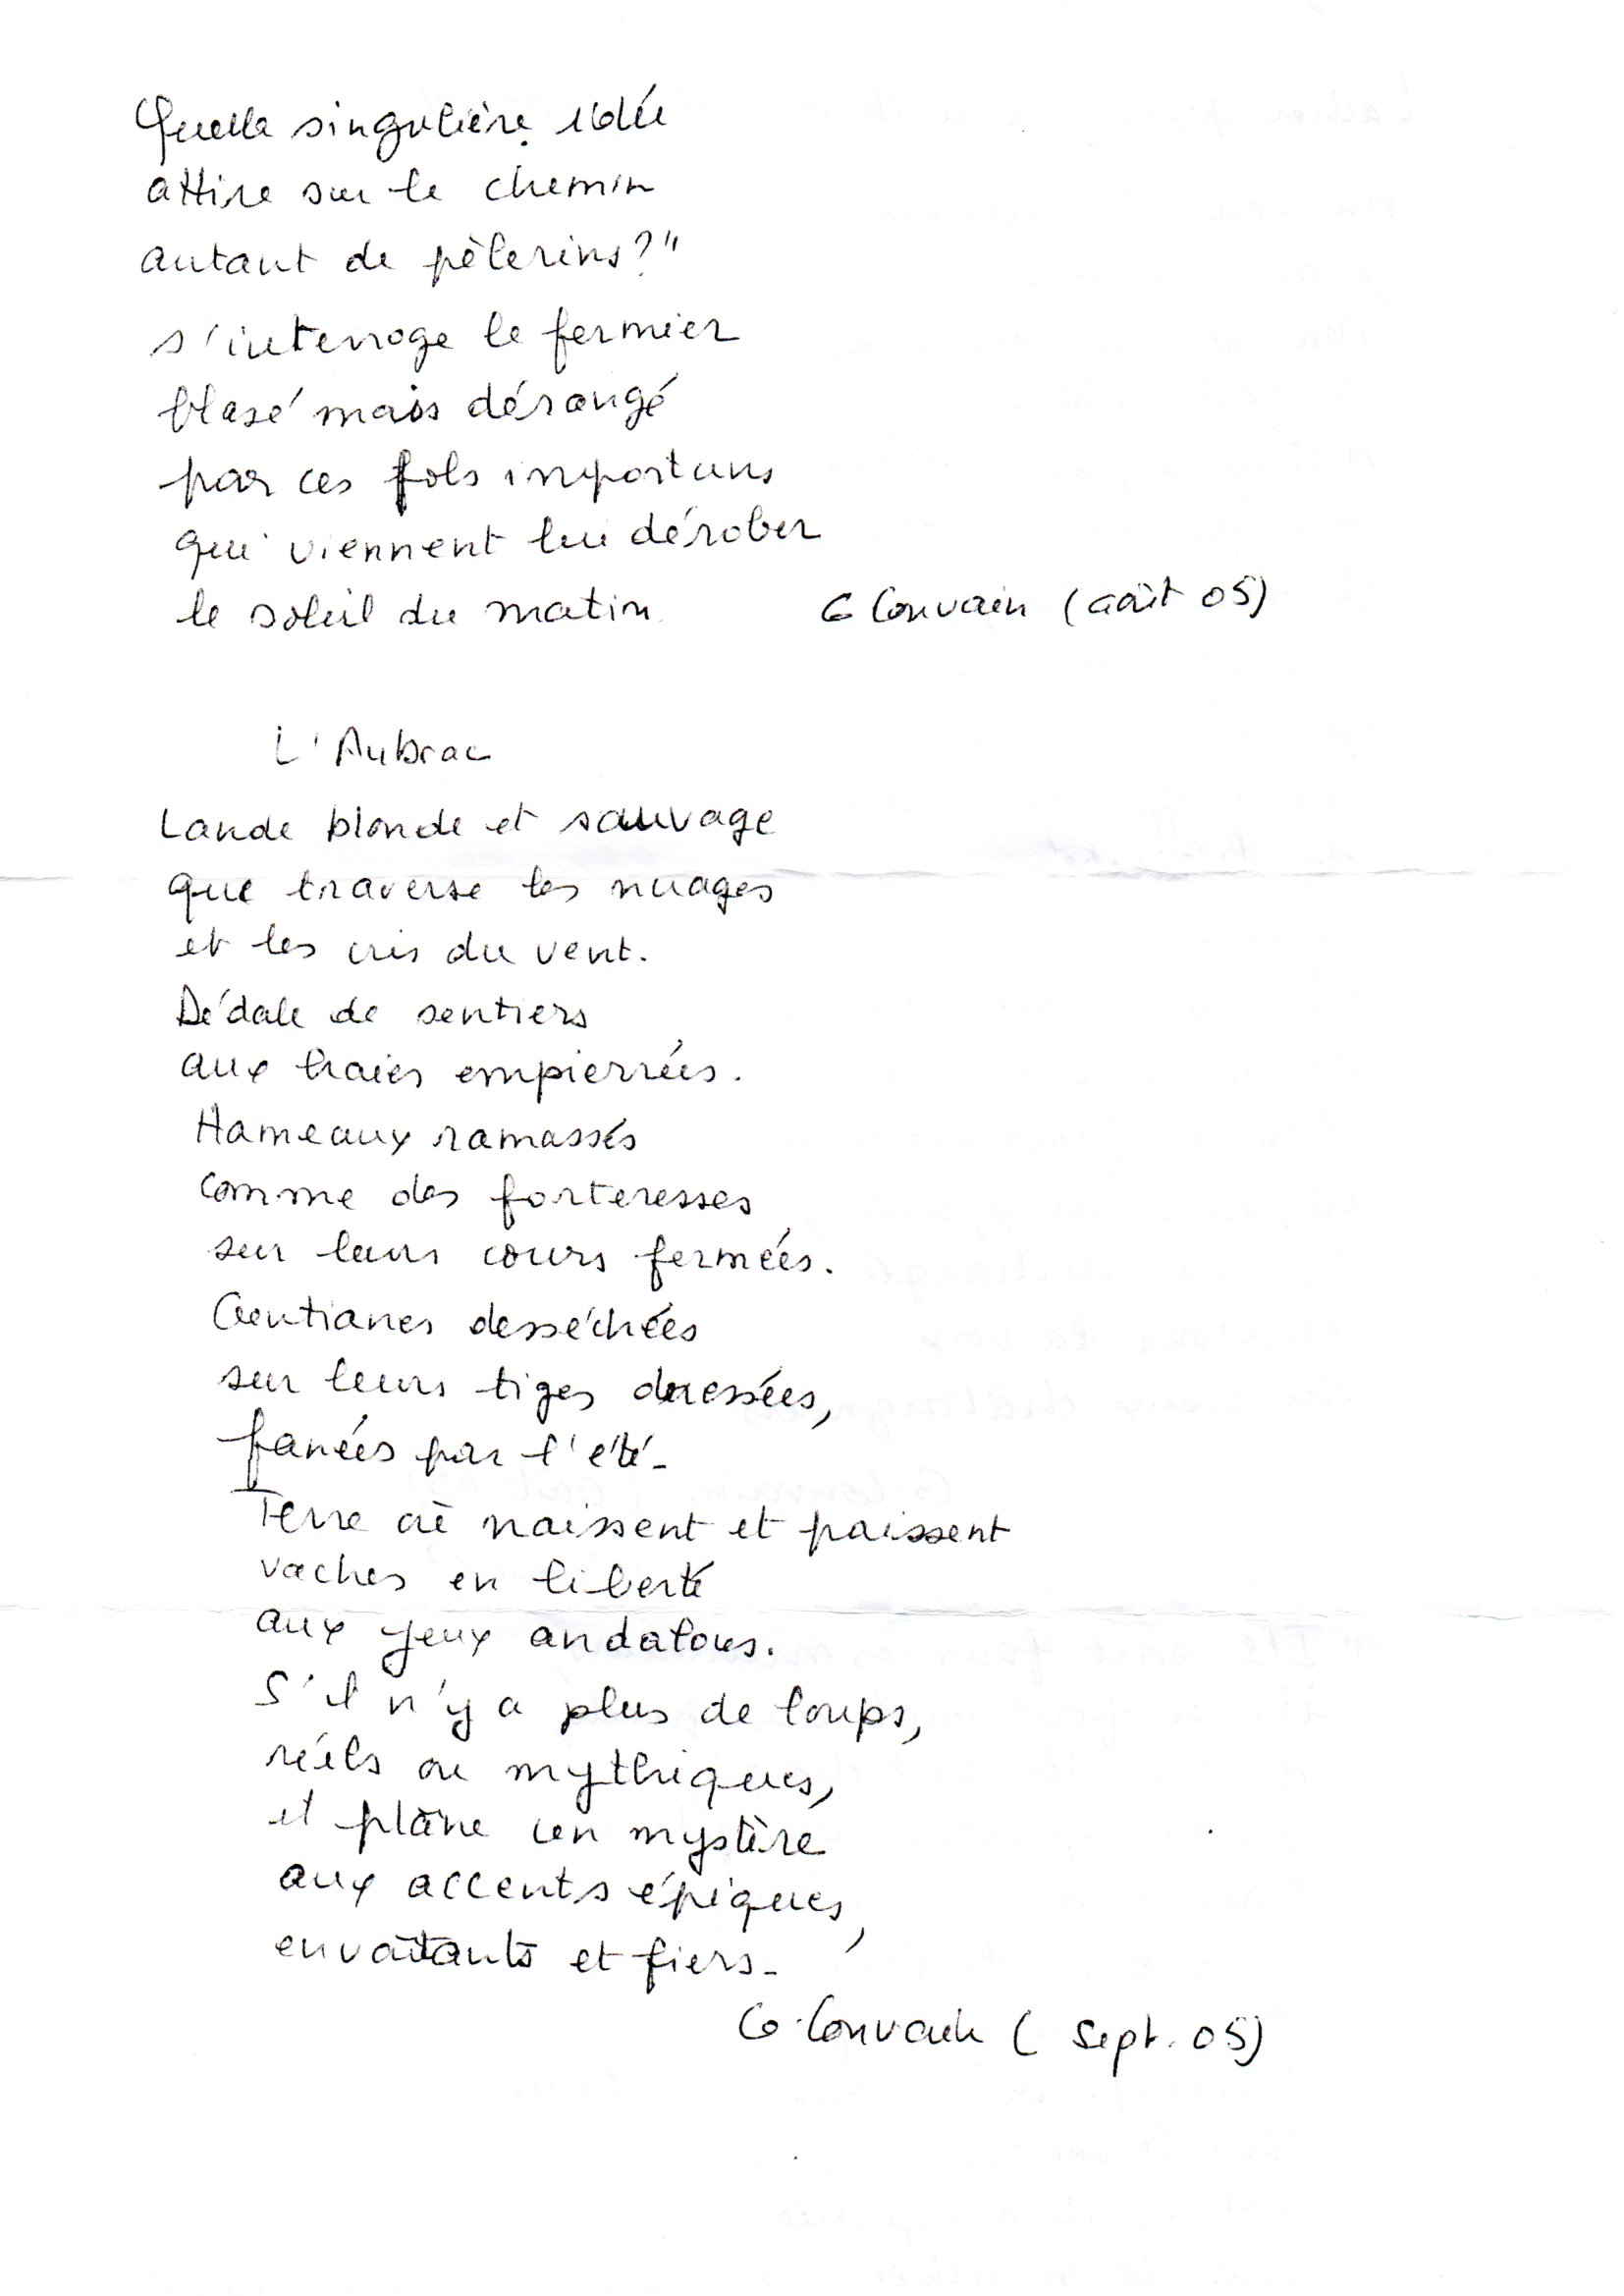 Quelle singulière idée
attire sur le chemin
autant de pèlerins?"
s'interroge le fermier
blasé mais dérangé
par ces fols importuns
qui viennent lui dérober
le soleil du matin
G Couvain (août 05)
L'Aubrac
Lande blonde et sauvage
que traverse les nuages
et les cris du vent.
Dédale de sentiers
aux haies empierrées.
Hameaux ramassés
comme des forteresses
sur leurs cours fermées.
Gentianes desséchées
sur leurs tiges dressées,
fanées par l'été-
Terre où naissent et paissent
vaches en liberté
aux yeux andalous.
S'il n'y a plus de loups,
réels ou mythiques,
il plane un mystère
aux accents épiques,
envoûtants et fiers-
G. Couvain (sept. 05)